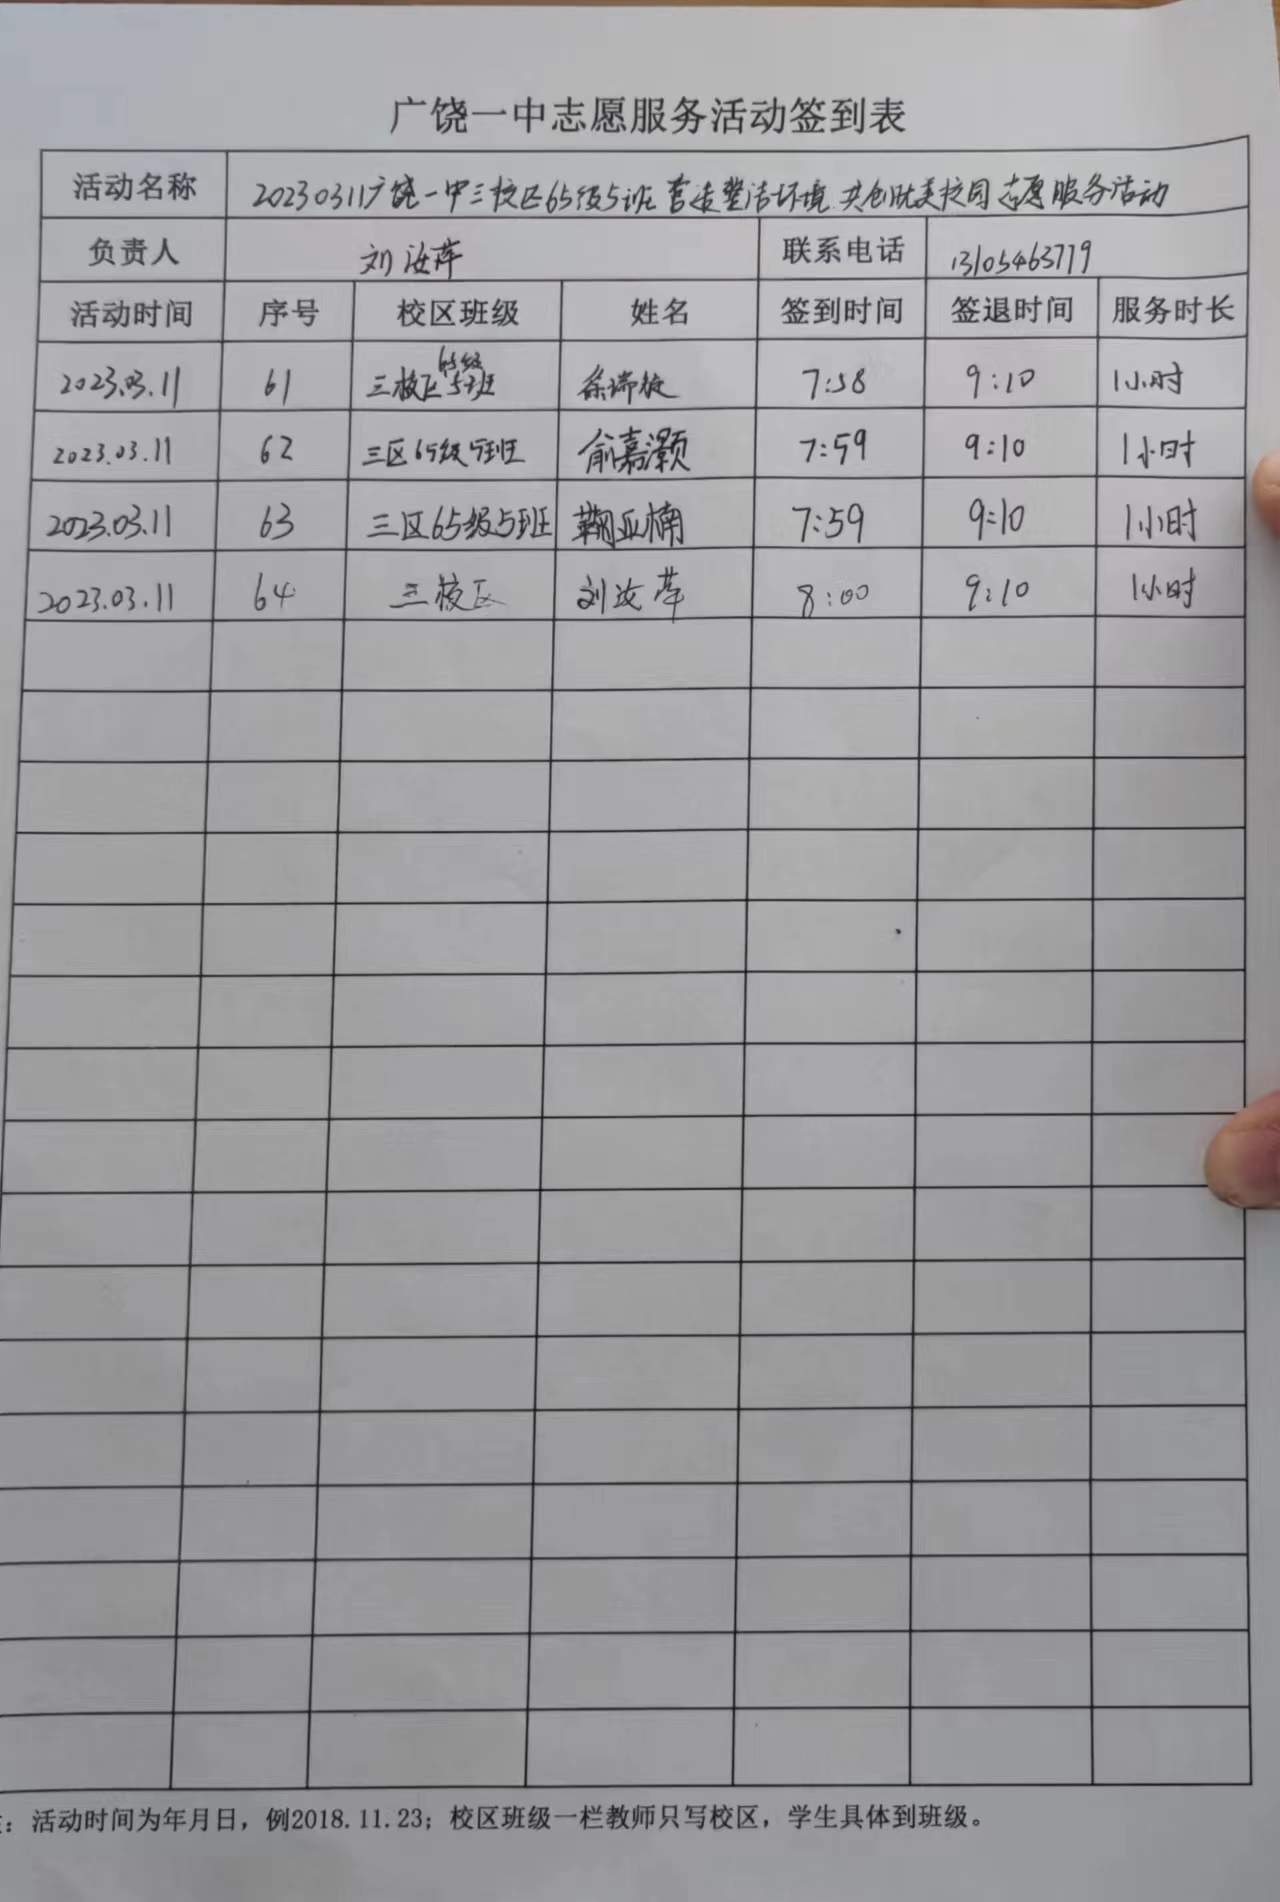 广饶一中志愿服务活动签到表
活动名称 20230311广饶一中三校区65级5班营造整洁环境 共创陇美校园志愿服务活动
负责人 刘汝萍 联系电话 13105463719
活动时间 序号 校区班级 姓名 签到时间 签退时间 服务时长
2023.03.11 61 三校区65级5班 徐瑞 7:58 9:10 1小时
2023.03.11 62 三区65级5班 俞嘉灏 7:59 9:10 1小时
2023.03.11 63 三区65级5班 鞠亚楠 7:59 9:10 1小时
2023.03.11 64 三校区 刘汝萍 8:00 9:10 1小时
：活动时间为年月日，例2018.11.23；校区班级一栏教师只写校区，学生具体到班级。